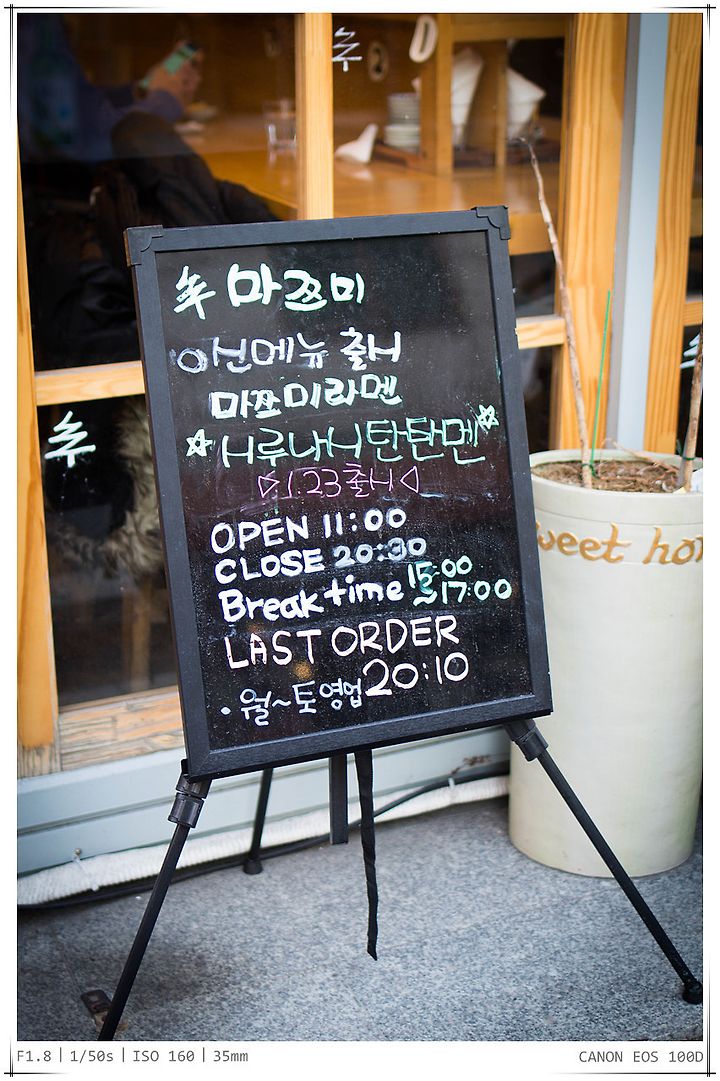 마쯔미
신메뉴 출시
마쯔미라멘
☆시루나시탄탄멘☆
▷1.23출시◁
OPEN 11:00
CLOSE 20:30
Break time 15:00
~17:00
LAST ORDER
20:10
• 월~토 영업
weet ho
F1.8 | 1/50s | ISO 160 | 35mm
CANON EOS 100D